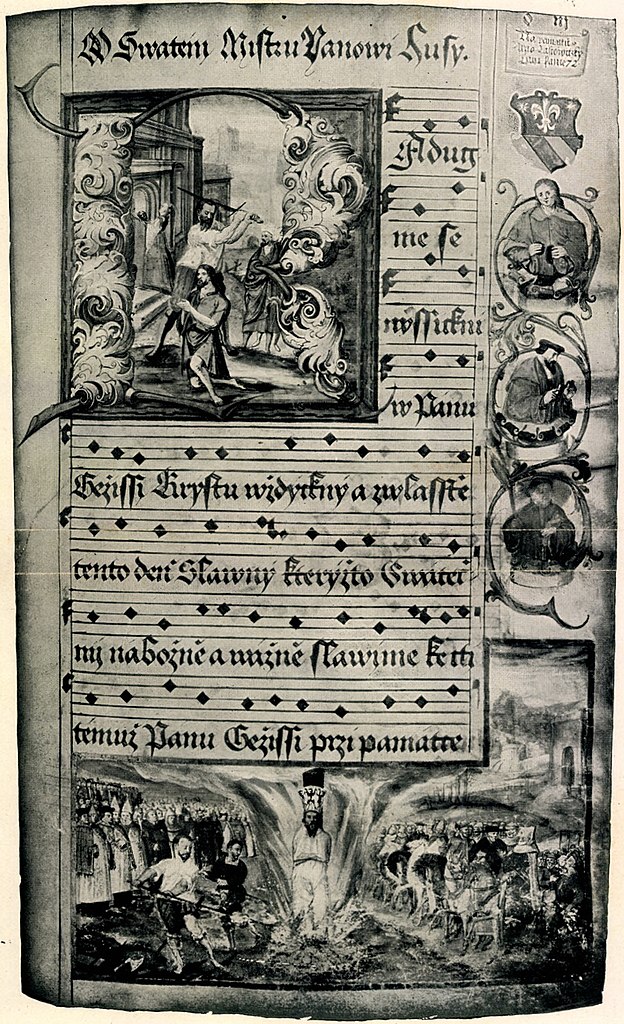 O Swatem Mistru Janowi Husy.
Radug
me se
wssickni
w Panu
Gežissi Krystu wždyckny a zwlasstě
tento den Slawny kteryžto Swateč
nij nabožně a wažně slawime ke cti
temuž Panu Gežissi przi pamatce